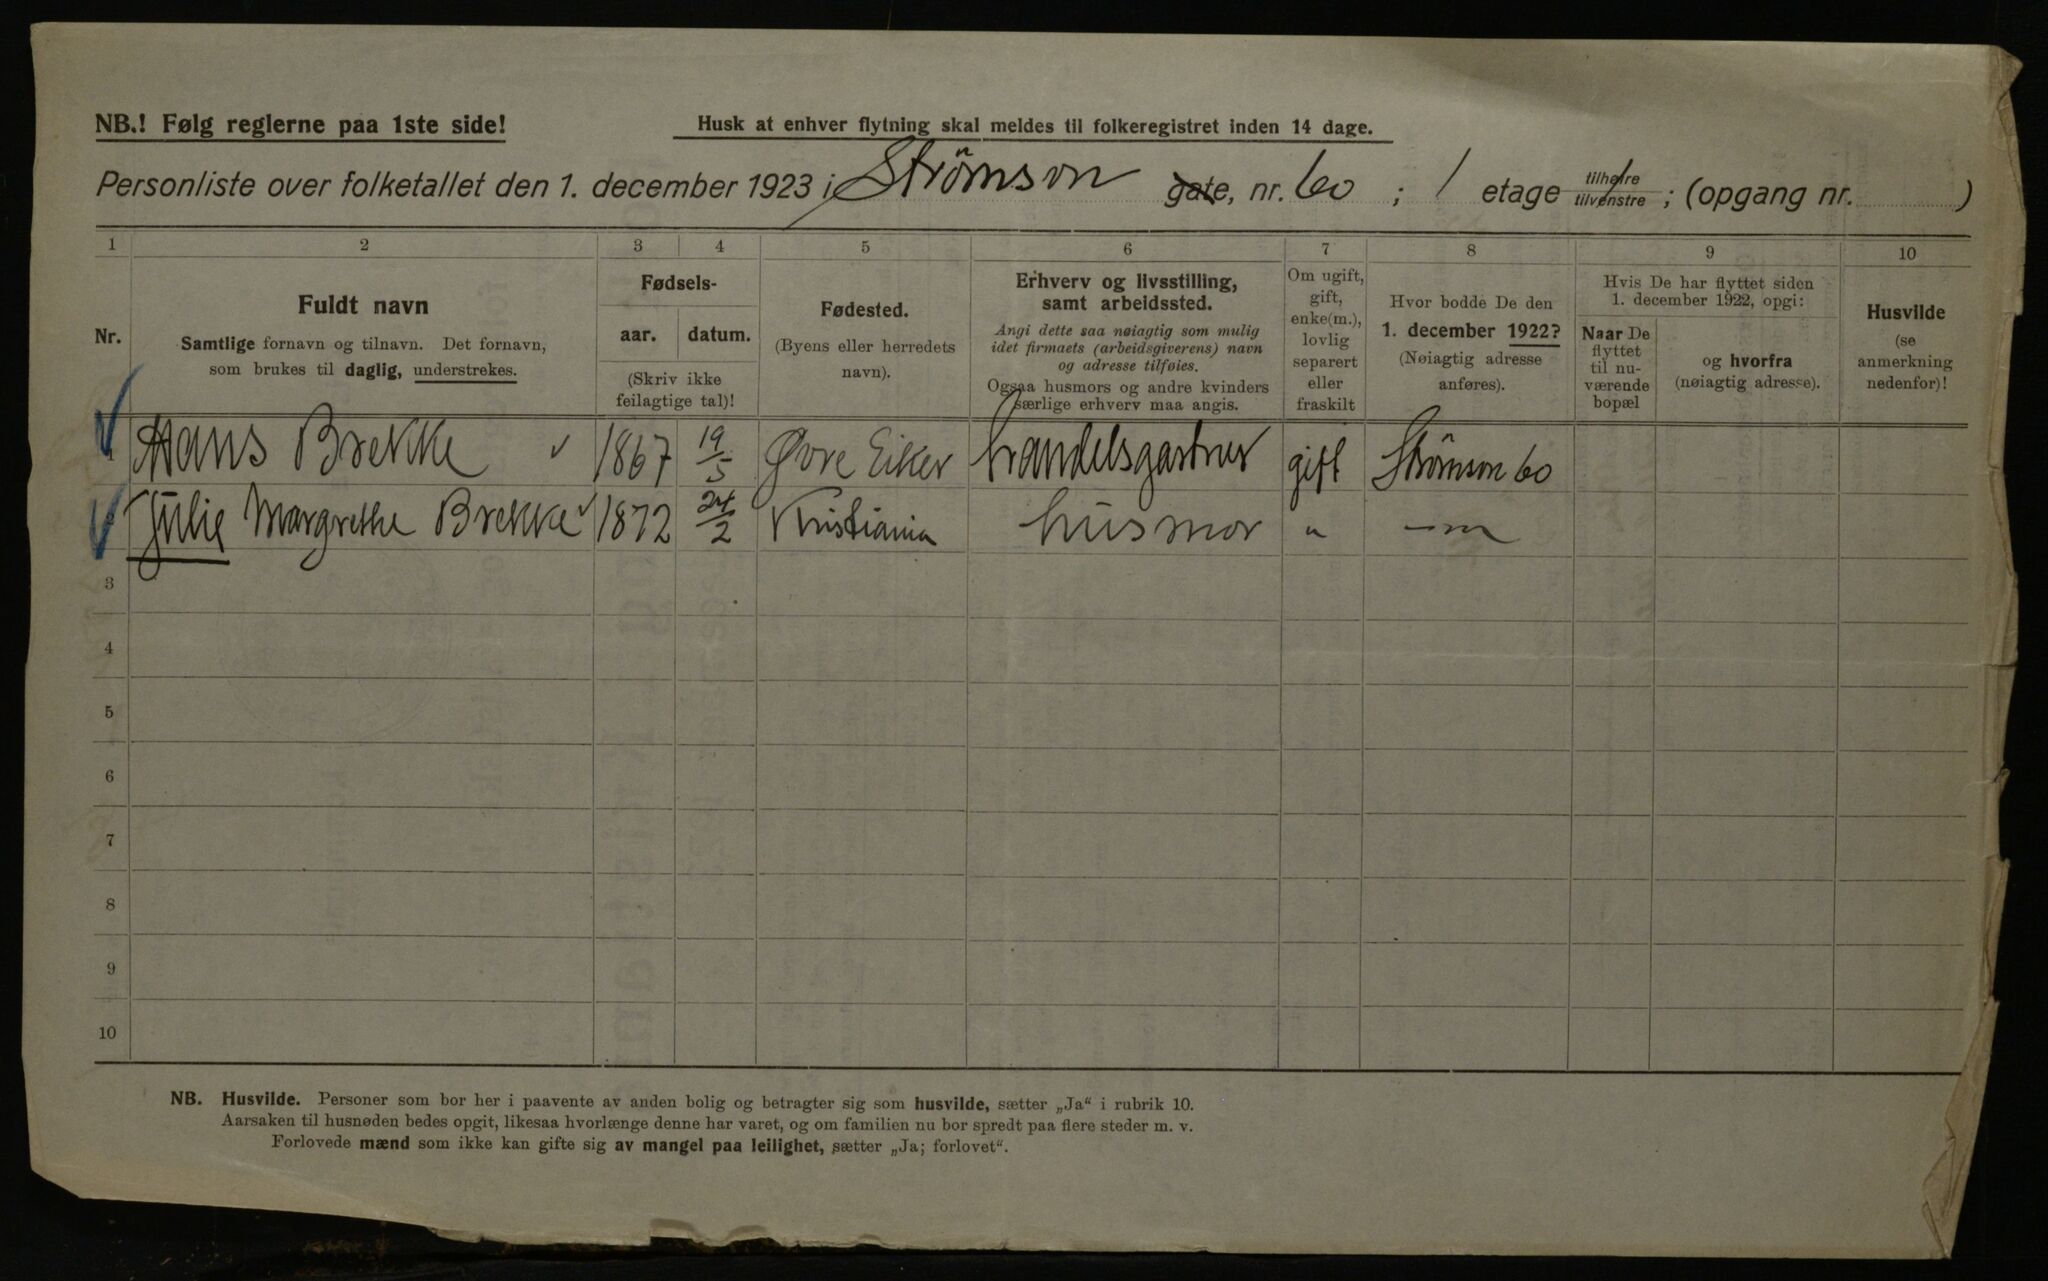 NB.! Følg reglerne paa 1ste side!
Husk at enhver flytning skal meldes til folkeregistret inden 14 dage.
Personliste over folketallet den 1. december 1923 i Strömson gate, nr. 60 ; 1 etage tilhøire tilvenstre ; (opgang nr. )
1 2 3 4 5 6 7 8 9 10
Nr.
Fuldt navn
Samtlige fornavn og tilnavn. Det fornavn,
som brukes til daglig, understrekes.
Fødsels-
aar. datum.
(Skriv ikke
feilagtige tal)!
Fødested.
(Byens eller herredets
navn).
Erhverv og livsstilling,
samt arbeidssted.
Angi dette saa nøiagtig som mulig
idet firmaets (arbeidsgiverens) navn
og adresse tilføies.
Ogsaa husmors og andre kvinders
særlige erhverv maa angis.
Om ugift,
gift,
enke(m.),
lovlig
separert
eller
fraskilt
Hvor bodde De den
1. december 1922?
(Nøiagtig adresse
anføres).
Hvis De har flyttet siden
1. december 1922, opgi:
Naar De
flyttet
til nu-
værende
bopæl
og hvorfra
(nøiagtig adresse).
Husvilde
(se
anmerkning
nedenfor)!
1 Hans Brekke 1867 19/5 Øvre Eiker handelsgartner gift Strömson 60
Julie Margrethe Brekke 1872 24/2 Kristiania husmor " —"—
3
4
5
6
7
8
9
10
NB. Husvilde. Personer som bor her i paavente av anden bolig og betragter sig som husvilde, sætter „Ja“ i rubrik 10.
Aarsaken til husnøden bedes opgit, likesaa hvorlænge denne har varet, og om familien nu bor spredt paa flere steder m. v.
Forlovede mænd som ikke kan gifte sig av mangel paa leilighet, sætter „Ja; forlovet“.